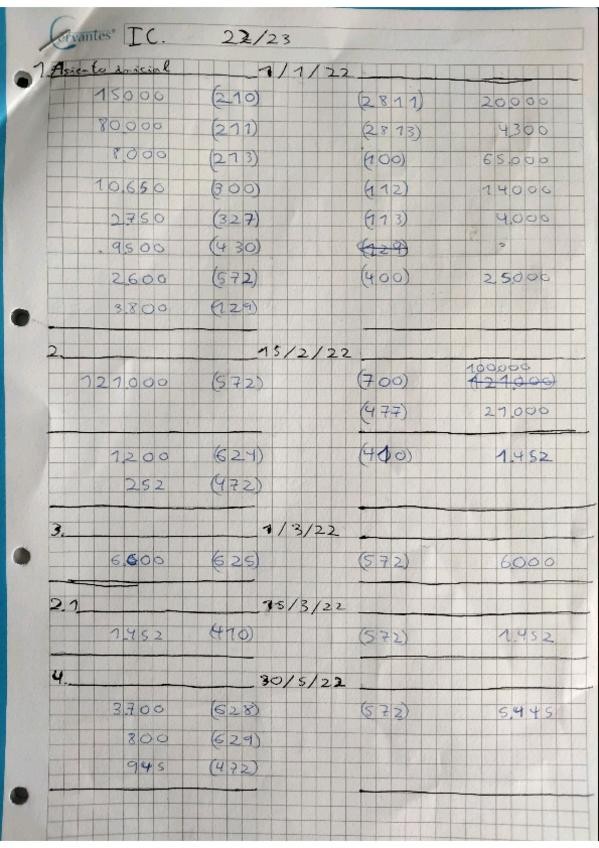 Cervantes IC. 22/23
1. Asiento inicial 1/1/22
15000 (210) (2811) 20.000
80.000 (211) (2813) 4,300
8,000 (213) (100) 65,000
10.650 (300) (112) 14000
2.750 (327) (113) 4.000
9500 (430) (129)
2600 (572) (400) 25000
3.800 (129)
2. 15/2/22
100000
121.000 (572) (700) 121.000
(477) 21,000
1,200 (624) (410) 1.452
252 (472)
3. 1/3/22
6.600 (625) (572) 6000
2.1 15/3/22
1.452 (410) (572) 1.452
4. 30/5/22
3.700 (628) (572) 5.445
800 (629)
945 (472)